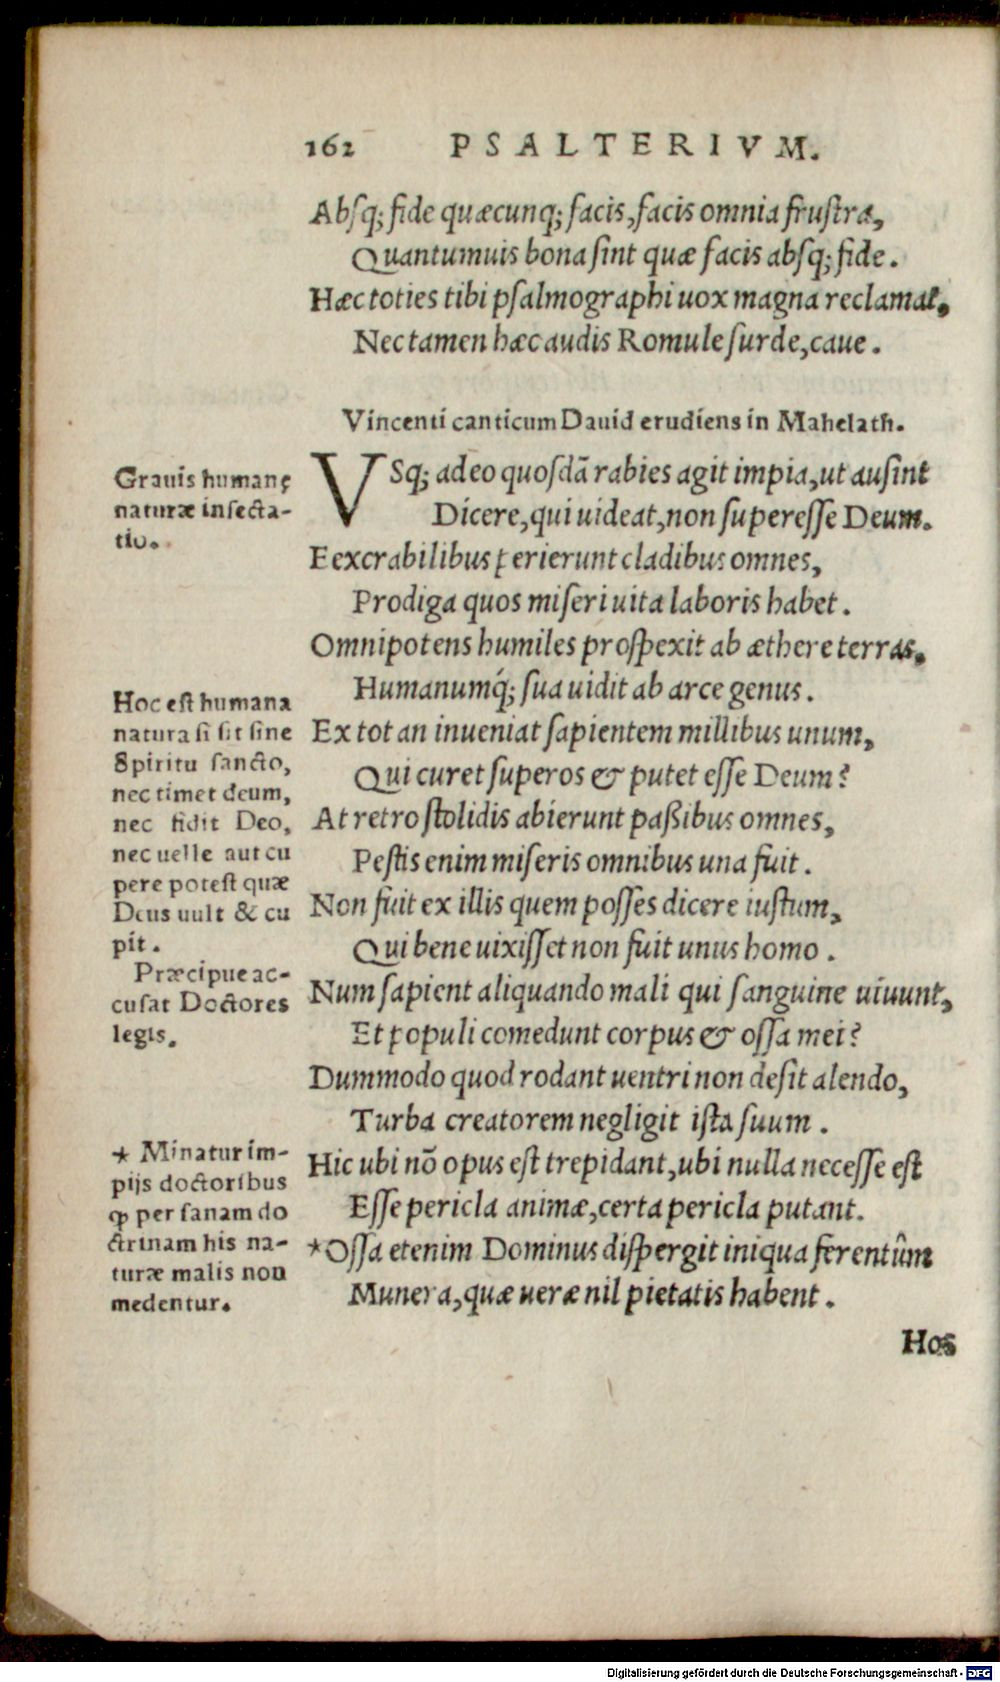 162 PSALTERIVM.
Absq; fide quæcunq; facis, facis omnia frustra,
Quantumuis bona sint quæ facis absq; fide.
Hæc toties tibi psalmographi uox magna reclamat,
Nec tamen hæc audis Romule surde, caue.
Vincenti canticum Dauid erudiens in Mahelath.
VSq; adeo quosdā rabies agit impia, ut ausint
Dicere, qui uideat, non superesse Deum.
Eexcrabilibus perierunt cladibus omnes,
Prodiga quos miseri uita laboris habet.
Omnipotens humiles prospexit ab æthere terras,
Humanumq́; sua uidit ab arce genus.
Ex tot an inueniat sapientem millibus unum,
Qui curet superos & putet esse Deum?
At retro stolidis abierunt paßibus omnes,
Pestis enim miseris omnibus una fuit.
Non fuit ex illis quem posses dicere iustum,
Qui bene uixisset non fuit unus homo.
Num sapient aliquando mali qui sanguine uiuunt,
Et populi comedunt corpus & ossa mei?
Dummodo quod rodant uentri non desit alendo,
Turba creatorem negligit ista suum.
Hic ubi nō opus est trepidant, ubi nulla necesse est
Esse pericla animæ, certa pericla putant.
*Ossa etenim Dominus dispergit iniqua ferentûm
Munera, quæ ueræ nil pietatis habent.
Hos
Grauis humanę
naturæ insecta-
tio.
Hoc est humana
natura si sit sine
Spiritu sancto,
nec timet deum,
nec fidit Deo,
nec uelle aut cu
pere potest quæ
Deus uult & cu
pit.
Præcipue ac-
cusat Doctores
legis.
* Minatur im-
pijs doctoribus
ꝙ per sanam do
ctrinam his na-
turæ malis non
medentur.
Digitalisierung gefördert durch die Deutsche Forschungsgemeinschaft - DFG